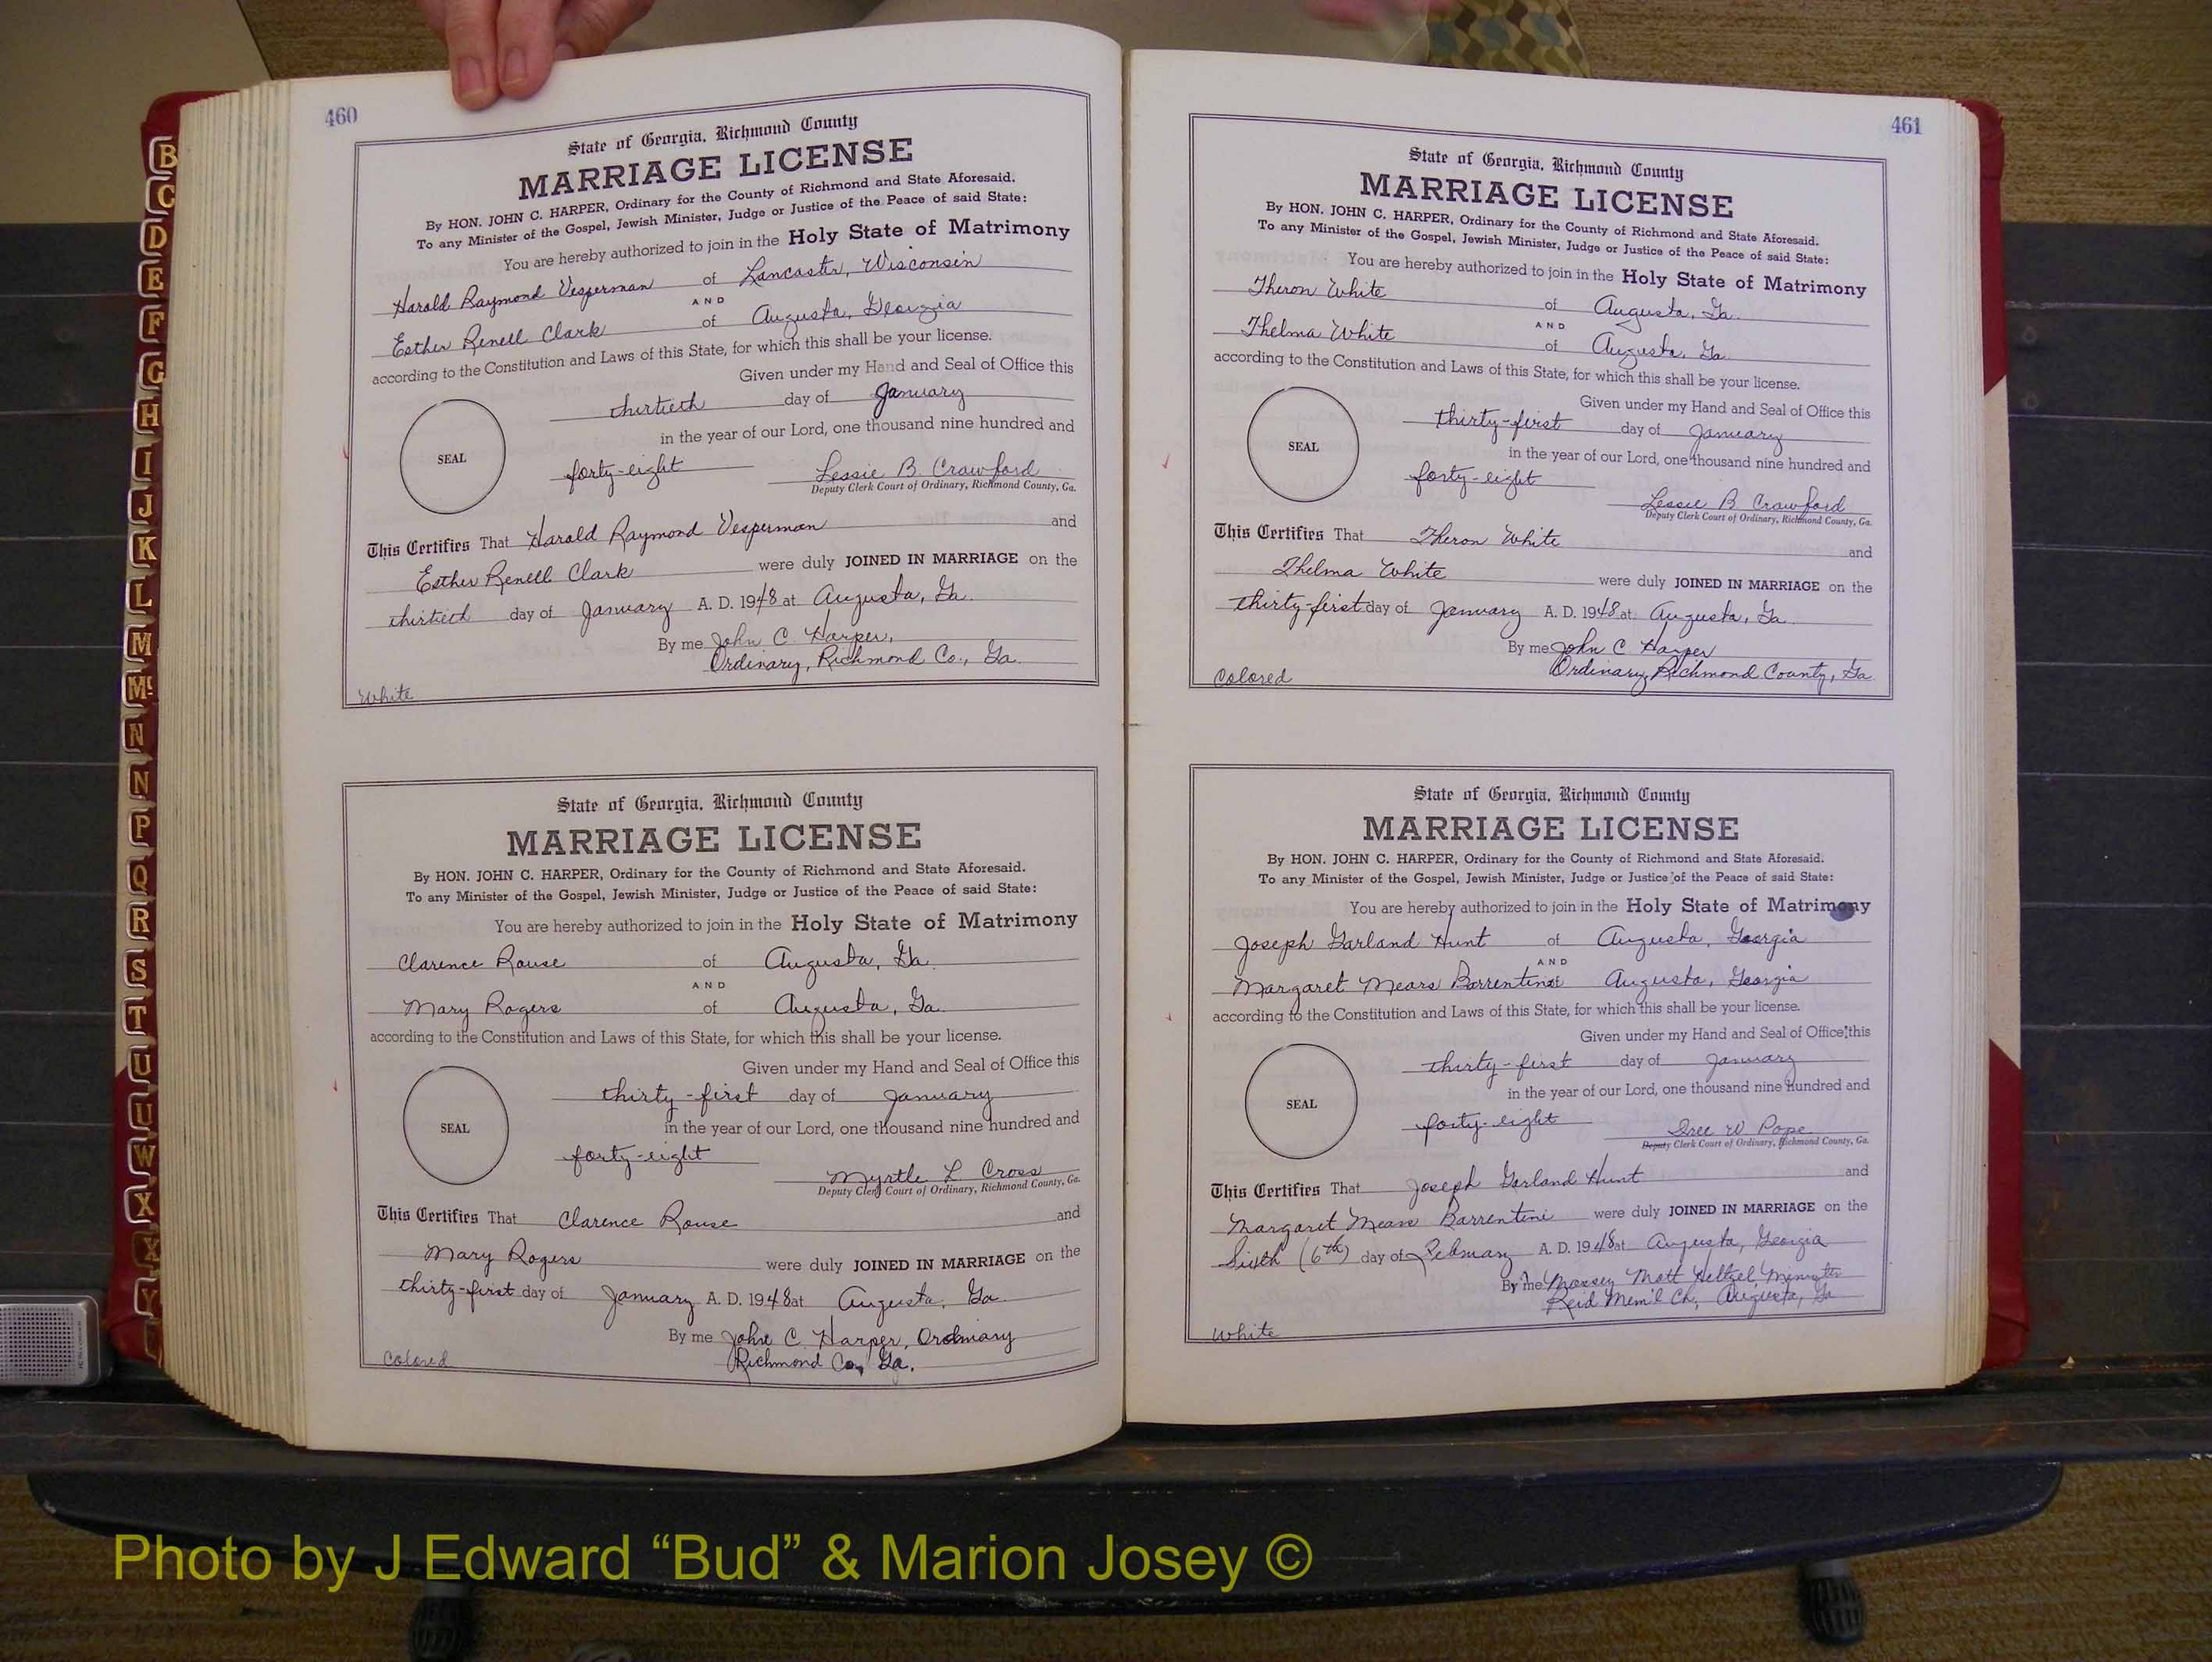 460
State of Georgia, Richmond County
MARRIAGE LICENSE
By HON. JOHN C. HARPER, Ordinary for the County of Richmond and State Aforesaid.
To any Minister of the Gospel, Jewish Minister, Judge or Justice of the Peace of said State:
You are hereby authorized to join in the Holy State of Matrimony
Harold Raymond Vesperman of Lancaster, Wisconsin
AND
Esther Renell Clark of Augusta, Georgia
according to the Constitution and Laws of this State, for which this shall be your license.
Given under my Hand and Seal of Office this
thirtieth day of January
in the year of our Lord, one thousand nine hundred and
SEAL
forty-eight Lessie B. Crawford
Deputy Clerk Court of Ordinary, Richmond County, Ga.
This Certifies That Harold Raymond Vesperman and
Esther Renell Clark were duly JOINED IN MARRIAGE on the
thirtieth day of January A. D. 1948 at Augusta, Ga.
By me John C. Harper,
Ordinary, Richmond Co., Ga.
White
State of Georgia, Richmond County
MARRIAGE LICENSE
By HON. JOHN C. HARPER, Ordinary for the County of Richmond and State Aforesaid.
To any Minister of the Gospel, Jewish Minister, Judge or Justice of the Peace of said State:
You are hereby authorized to join in the Holy State of Matrimony
Clarence Rouse of Augusta, Ga.
AND
Mary Rogers of Augusta, Ga.
according to the Constitution and Laws of this State, for which this shall be your license.
Given under my Hand and Seal of Office this
thirty-first day of January
in the year of our Lord, one thousand nine hundred and
SEAL
forty-eight
Myrtle L Cross
Deputy Clerk Court of Ordinary, Richmond County, Ga.
This Certifies That Clarence Rouse and
Mary Rogers were duly JOINED IN MARRIAGE on the
thirty-first day of January A. D. 1948 at Augusta, Ga.
By me John C. Harper, Ordinary
Richmond Co., Ga.
Colored
461
State of Georgia, Richmond County
MARRIAGE LICENSE
By HON. JOHN C. HARPER, Ordinary for the County of Richmond and State Aforesaid.
To any Minister of the Gospel, Jewish Minister, Judge or Justice of the Peace of said State:
You are hereby authorized to join in the Holy State of Matrimony
Theron White of Augusta, Ga.
AND
Thelma White of Augusta, Ga.
according to the Constitution and Laws of this State, for which this shall be your license.
Given under my Hand and Seal of Office this
thirty-first day of January
in the year of our Lord, one thousand nine hundred and
SEAL
forty-eight
Lessie B Crawford
Deputy Clerk Court of Ordinary, Richmond County, Ga.
This Certifies That Theron White and
Thelma White were duly JOINED IN MARRIAGE on the
thirty-first day of January A. D. 1948 at Augusta, Ga.
By me John C Harper
Ordinary, Richmond County, Ga.
Colored
State of Georgia, Richmond County
MARRIAGE LICENSE
By HON. JOHN C. HARPER, Ordinary for the County of Richmond and State Aforesaid.
To any Minister of the Gospel, Jewish Minister, Judge or Justice of the Peace of said State:
You are hereby authorized to join in the Holy State of Matrimony
Joseph Garland Hunt of Augusta, Georgia
AND
Margaret Mears Barrentine of Augusta, Georgia
according to the Constitution and Laws of this State, for which this shall be your license.
Given under my Hand and Seal of Office this
thirty-first day of January
in the year of our Lord, one thousand nine hundred and
SEAL
forty-eight
W Pope
Deputy Clerk Court of Ordinary, Richmond County, Ga.
This Certifies That Joseph Garland Hunt and
Margaret Mears Barrentine were duly JOINED IN MARRIAGE on the
Sixth (6th) day of February A. D. 1948 at Augusta, Georgia
By me Massey Mott Heltzel, Minister
Reid Mem'l Ch, Augusta, Ga
White
B
C
D
E
F
G
H
I
J
K
L
M
Mc
N
N
P
Q
R
S
T
U
U
W
X
X
Y
Photo by J Edward “Bud” & Marion Josey ©